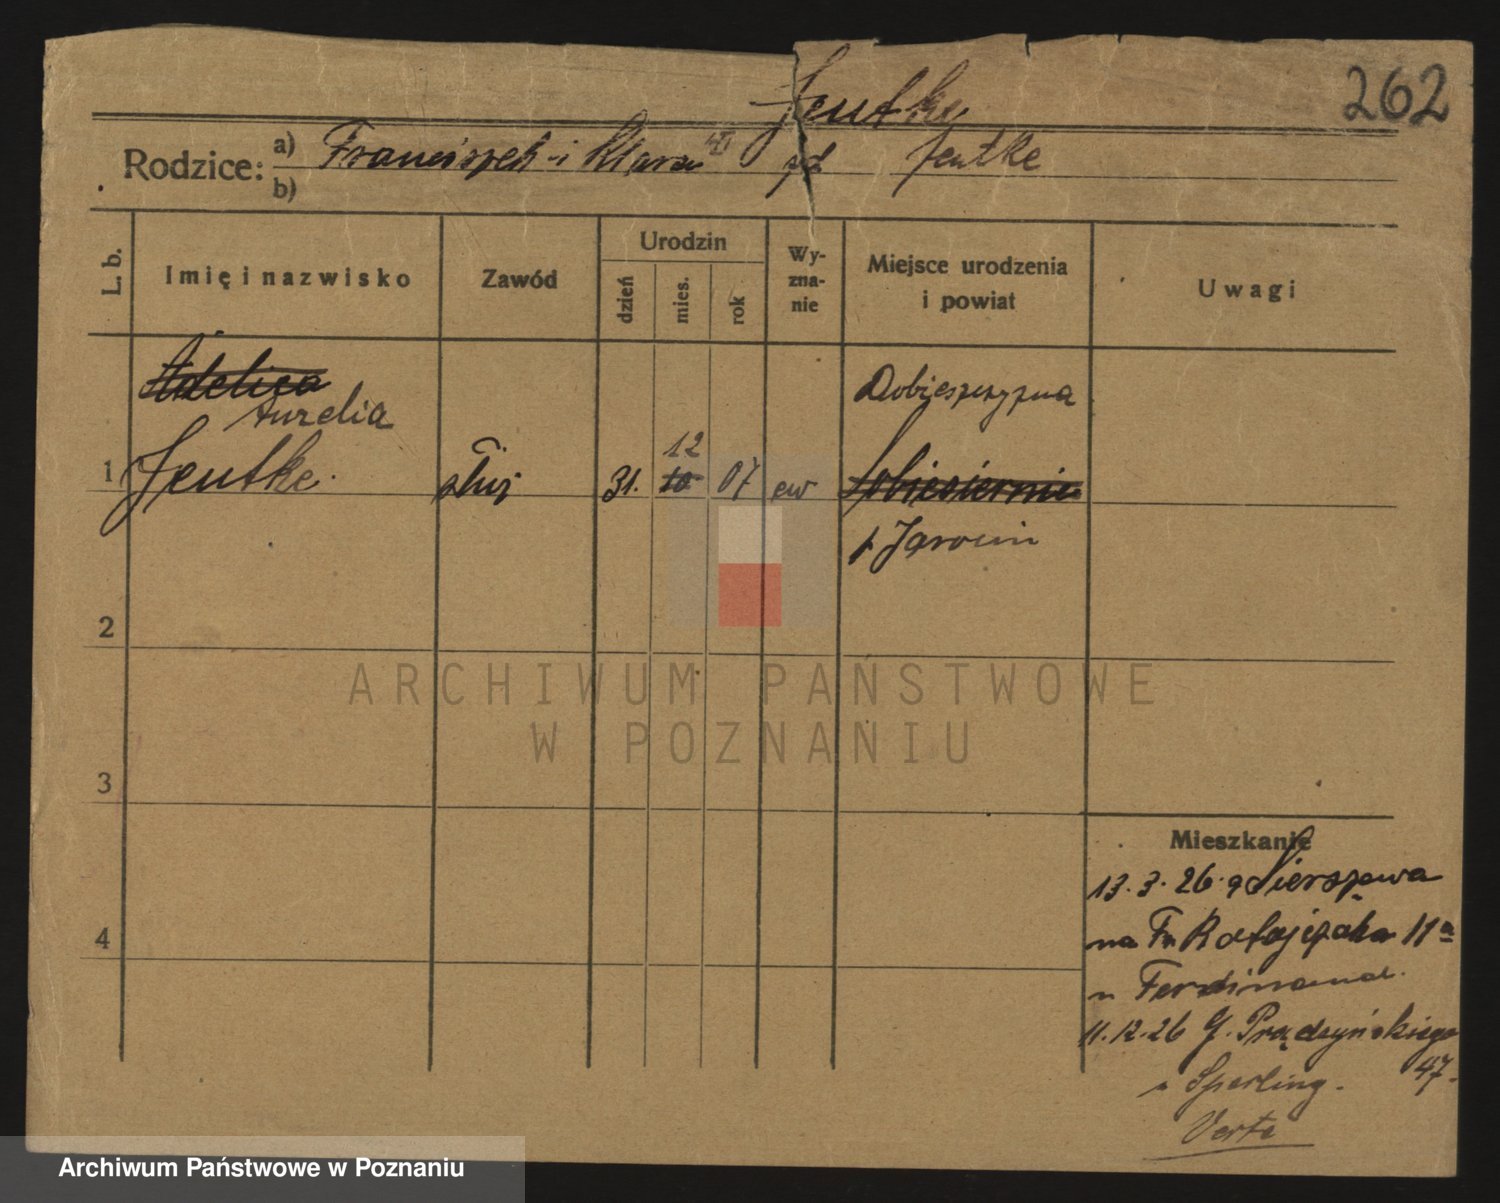 262
Jeutke
Rodzice: a) Franciszek i Klara zd Jeutke
b)
L. b.
Imię i nazwisko
Zawód
Urodzin
dzień
mies.
rok
Wy-
zna-
nie
Miejsce urodzenia
i powiat
Uwagi
Adelica
Aurelia
Dobieszczyzna
12
1 Jeutke służ 31. 10 07 ew
p Jarocin
2
3
4
ARCHIWUM PAŃSTWOWE
W POZNANIU
Mieszkanie
13.3.26 z Sierszewa
na Fr Ratajczaka 11a
u Ferdinand.
11.12.26 G. Prądzyńskiego
47.
u Sperling.
Verte
Archiwum Państwowe w Poznaniu